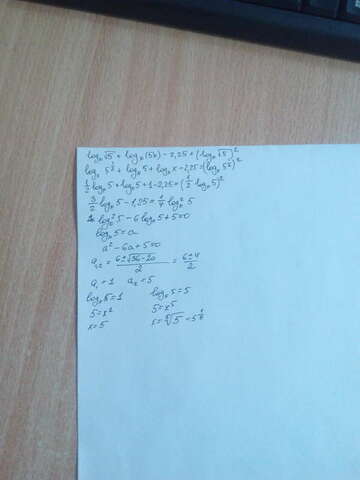 logₓ√5 + logₓ(5x) - 2,25 = (logₓ√5)²
logₓ 5^½ + logₓ5 + logₓx - 2,25 = (logₓ5^½)²
½ logₓ5 + logₓ5 + 1 - 2,25 = (½ logₓ5)²
3/2 logₓ5 - 1,25 = ¼ logₓ²5
logₓ²5 - 6 logₓ5 + 5 = 0
logₓ5 = a
a² - 6a + 5 = 0
a₁,₂ = (6 ± √36 - 20)/2 = (6 ± 4)/2
a₁ = 1 a₂ = 5
logₓ5 = 1 logₓ5 = 5
5 = x¹ 5 = x⁵
x = 5 x = ⁵√5 = 5^⅕